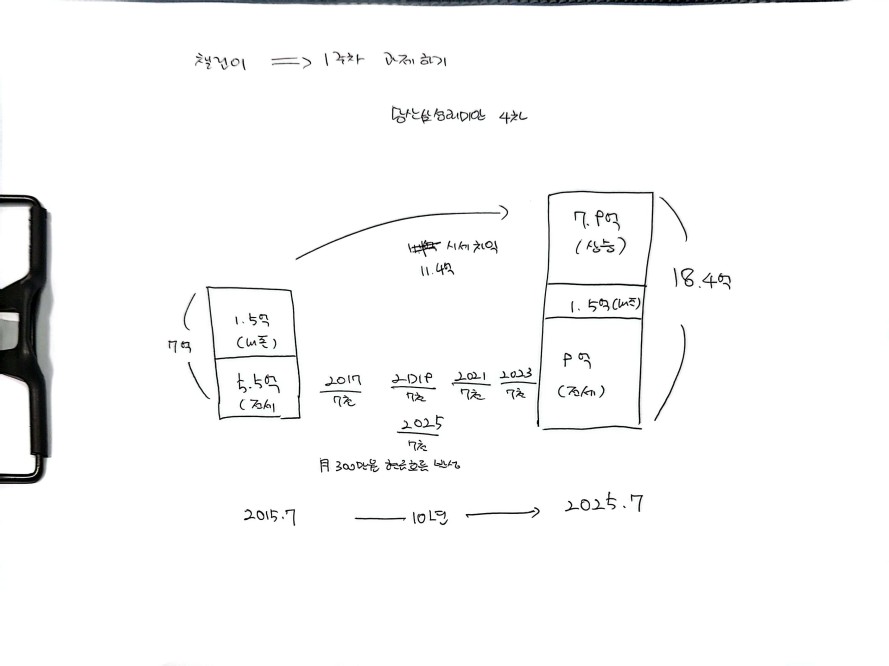 챌린이 => 1주차 과제하기
당산삼성래미안 4차
7.9억
(상승)
시세차익
11.4억
18.4억
1.5억
7억
5.5억
(전세
1.5억
9억
(전세)
2017
7천
2019
7천
2021
7천
2023
7천
2025
7천
月 300만원 현금흐름 발생
2015.7 10년 2025.7